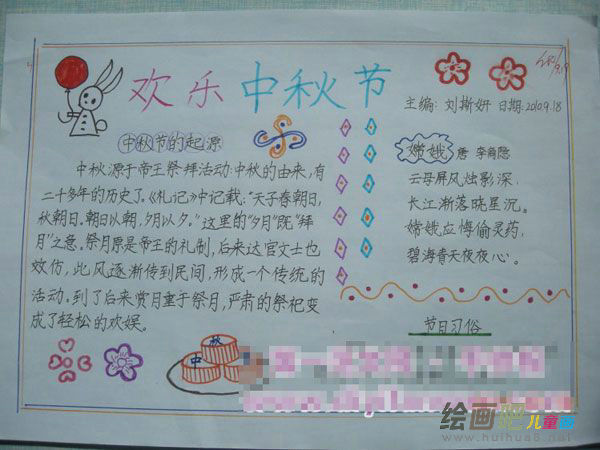 欢乐中秋节
主编：刘斯妍 日期：2010.9.18
中秋节的起源
中秋源于帝王祭拜活动.中秋的由来,有
二十多年的历史了。《札记》中记载："天子春朝日,
秋朝日.朝日以朝,夕月以夕。"这里的"夕月"既"拜
月"之意.祭月原是帝王的礼制,后来达官文士也
效仿,此风逐渐传到民间,形成一个传统的
活动.到了后来赏月重于祭月,严肃的祭祀变
成了轻松的欢娱。
嫦娥 唐 李商隐
云母屏风烛影深,
长江渐落晓星沉。
嫦娥应悔偷灵药,
碧海青天夜夜心。
节日习俗
中 秋
绘画吧儿童画
www.huihua8.net